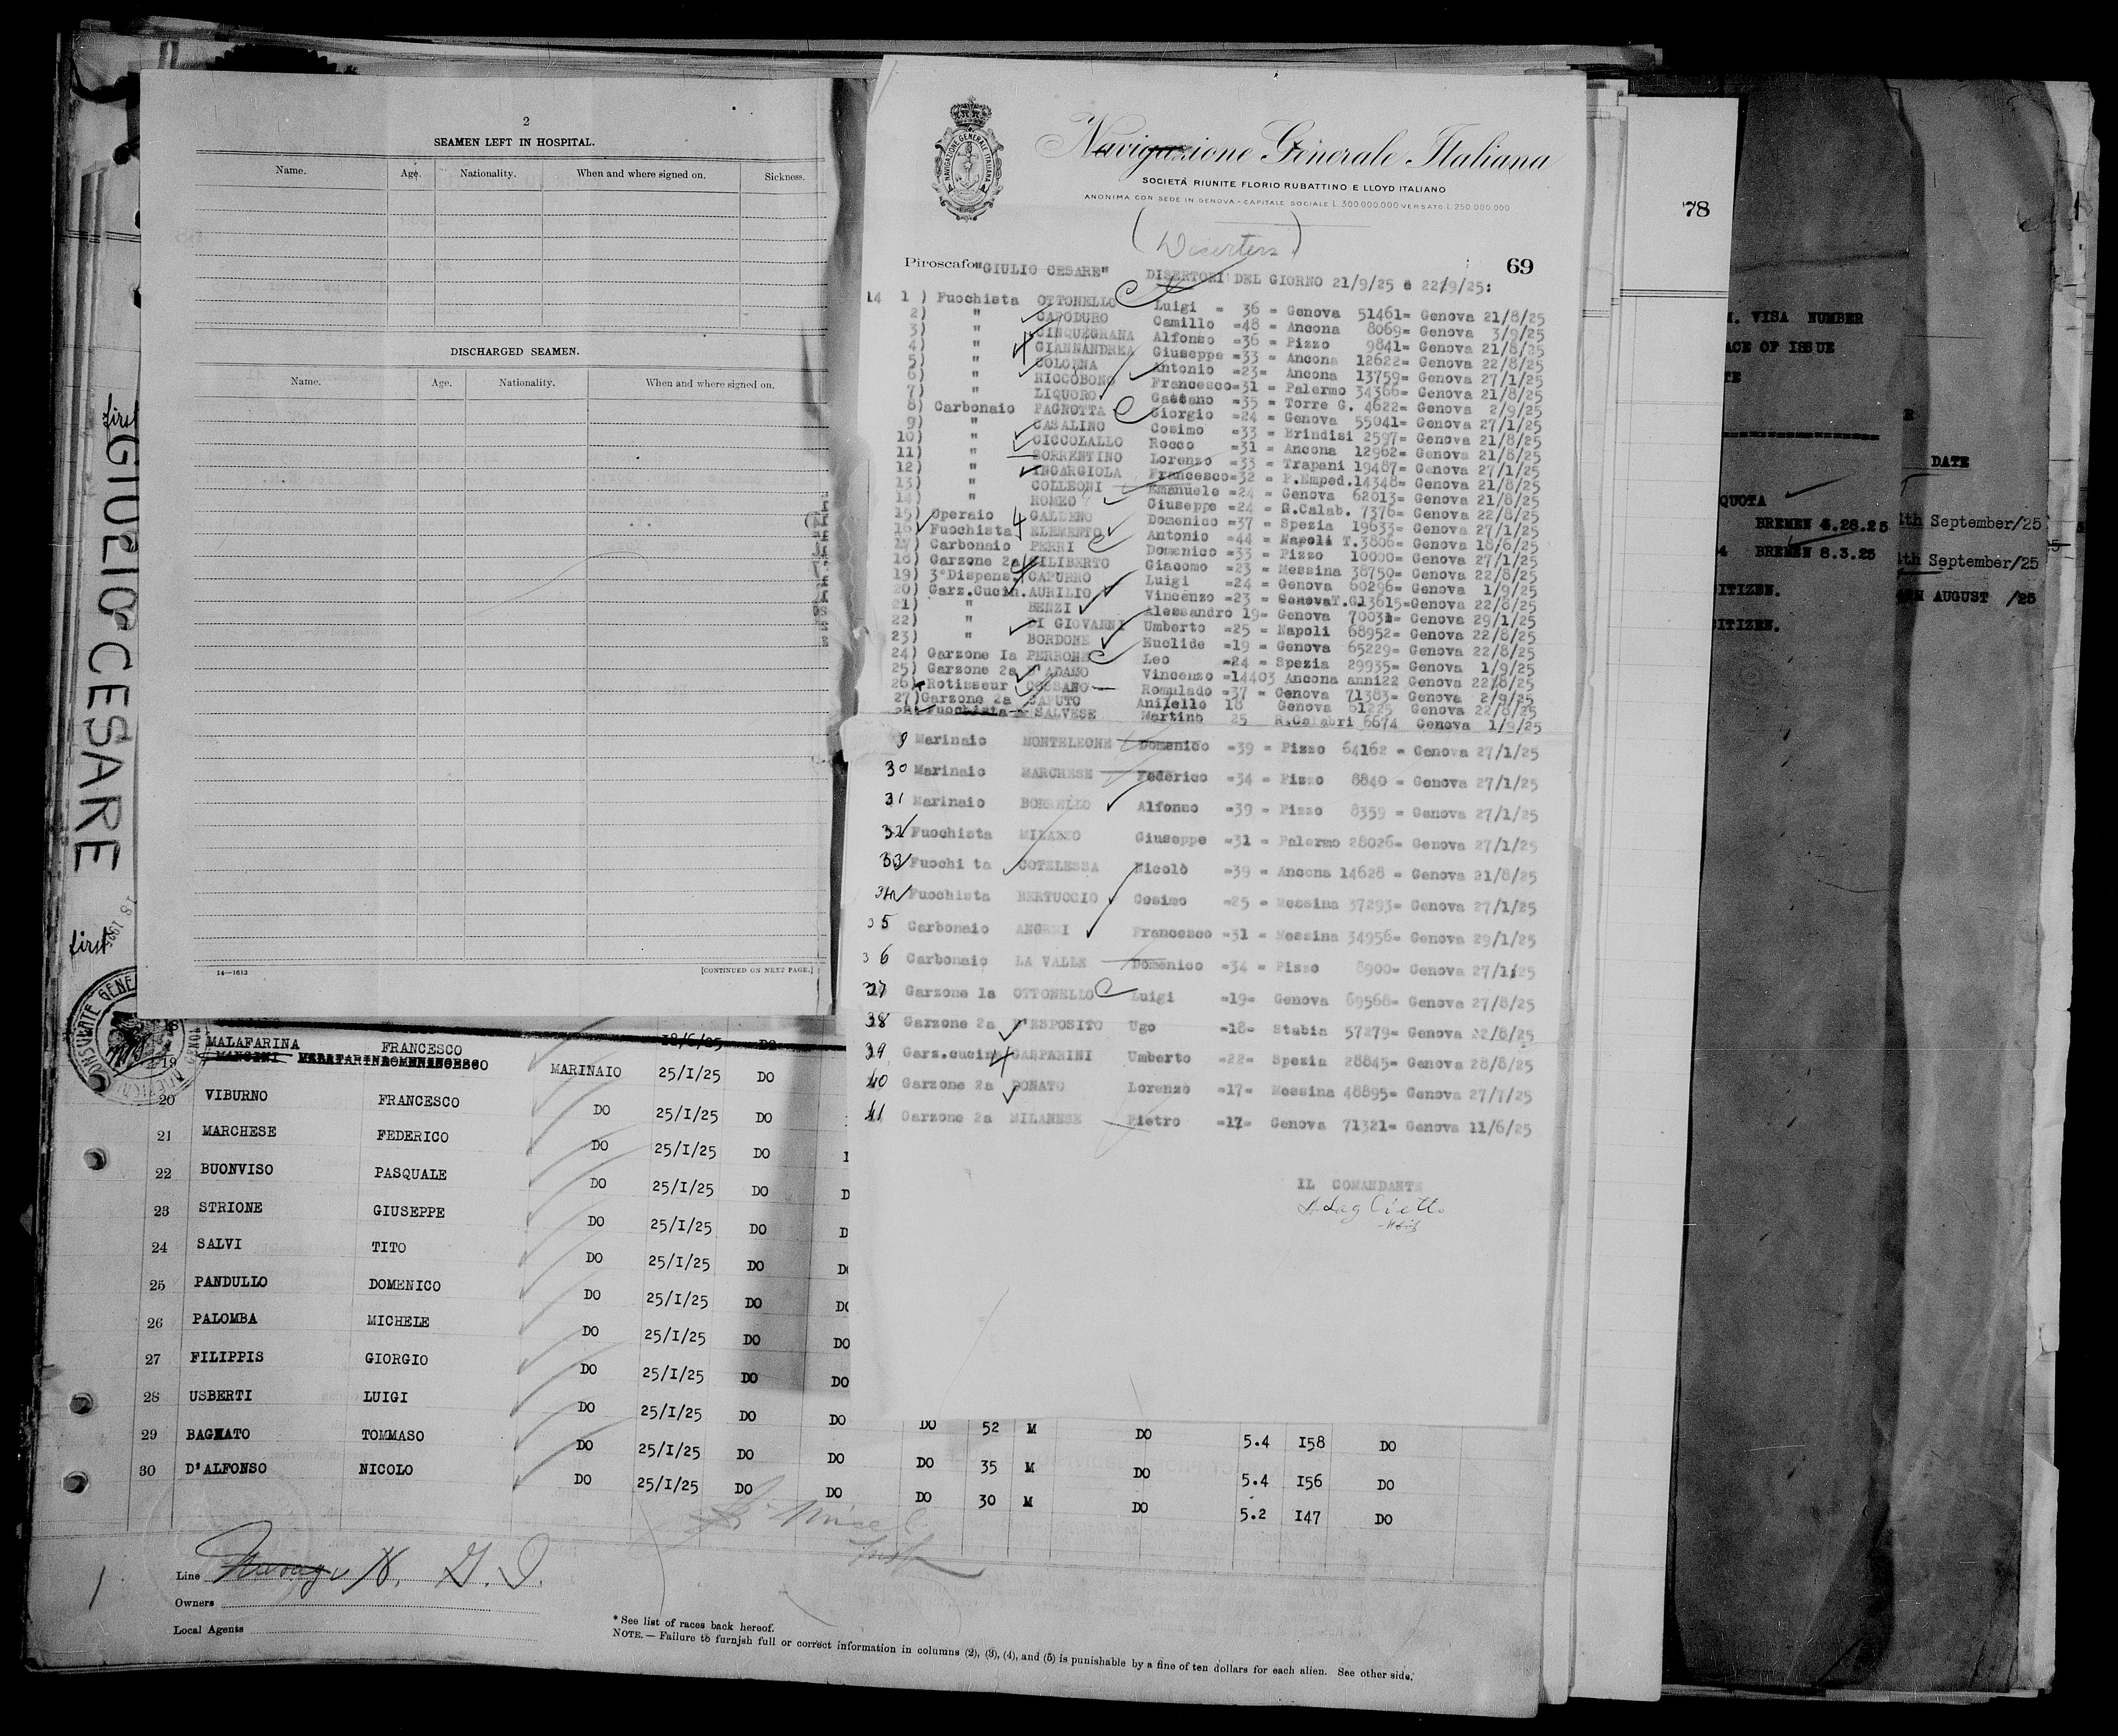 2
SEAMEN LEFT IN HOSPITAL.
Name. Age. Nationality. When and where signed on. Sickness.
DISCHARGED SEAMEN.
Name. Age. Nationality. When and where signed on.
14—1613 [CONTINUED ON NEXT PAGE.]
first
GIULIO CESARE
first
NAVIGAZIONE GENERALE ITALIANA
Navigazione Generale Italiana
SOCIETÀ RIUNITE FLORIO RUBATTINO E LLOYD ITALIANO
ANONIMA CON SEDE IN GENOVA - CAPITALE SOCIALE L. 300.000.000 VERSATO L. 250.000.000
(Deserters)
69
Piroscafo "GIULIO CESARE" DISERTORI DEL GIORNO 21/9/25 e 22/9/25:
14 1 ) Fuochista OTTONELLO Luigi = 36 = Genova 51461= Genova 21/8/25
2) " CAPODURO Camillo =48 = Ancona 8069= Genova 3/9/25
3) " CINQUEGRANA Alfonso =36 = Pizzo 9841= Genova 21/8/25
4) " GIANNANDREA Giuseppe =33 = Ancona 12622= Genova 22/8/25
5) " COLONNA Antonio =23= Ancona 13759= Genova 27/1/25
6) " RICCOBONO Francesco=31 = Palermo 34366= Genova 21/8/25
7) " LIQUORO Gaetano =35 = Torre G. 4622= Genova 2/9/25
8) Carbonaio PAGNOTTA Giorgio =24 = Genova 55041= Genova 27/1/25
9) " CASALINO Cosimo =33 = Brindisi 2597= Genova 21/8/25
10) " CICCOLALLO Rocco =31 = Ancona 12962= Genova 21/8/25
11) " SORRENTINO Lorenzo =33 = Trapani 19487= Genova 27/1/25
12) " INCARGIOLA Francesco=32 = P.Emped.14348= Genova 21/8/25
13) " COLLEONI Emanuele =24 = Genova 62013= Genova 21/8/25
14) " ROMEO Giuseppe =24 = R.Calab. 7376= Genova 22/8/25
15) Operaio GALLENO Domenico =37 = Spezia 19633= Genova 27/1/25
16) Fuochista ELEMENTO Antonio =44 = Napoli T.3806= Genova 18/6/25
17) Carbonaio PERRI Domenico =33 = Pizzo 10000= Genova 27/1/25
18) Garzone 2a CILIBERTO Giacomo =23 = Messina 38750= Genova 22/8/25
19) 3°Dispens. CAPURRO Luigi =24 = Genova 60296= Genova 1/9/25
20) Garz.Cucin. AURILIO Vincenzo =23 = GenovaT.G.13615=Genova 22/8/25
21) " BENZI Alessandro 19= Genova 70031= Genova 29/1/25
22) " DI GIOVANNI Umberto =25 = Napoli 68952= Genova 22/8/25
23) " BORDONE Euclide =19 = Genova 65229= Genova 22/8/25
24) Garzone Ia PERRONE Leo =24 = Spezia 29935= Genova 1/9/25
25) Garzone 2a D'ADAMO Vincenzo =14403 Ancona anni22 Genova 22/8/25
26) Rotisseur COSSANO Romulado =37 = Genova 71383= Genova 2/9/25
27)Garzone 2a SAPUTO Aniello 18 Genova 61225 Genova 22/8/25
28 Fuochista SALVESE Martino 25 R.Calabri 6674 Genova 1/9/25
9 Marinaio MONTELEONE Domenico =39 = Pizzo 64162 = Genova 27/1/25
30 Marinaio MARCHESE Federico =34 = Pizzo 8840 = Genova 27/1/25
31 Marinaio BORRELLO Alfonso =39 = Pizzo 8359 = Genova 27/1/25
32 Fuochista MILAZZO Giuseppe =31 = Palermo 28026= Genova 27/1/25
33 Fuochi ta COTELESSA Nicolò =39 = Ancona 14628 = Genova 21/8/25
34 Fuochista BERTUCCIO Cosimo =25 = Messina 37293= Genova 27/1/25
35 Carbonaio Francesco =31 = Messina 34956= Genova 29/1/25
36 Carbonaio LA VALLE Domenico =34 = Pizzo 8900= Genova 27/1/25
37 Garzone 1a OTTONELLO Luigi =19= Genova 69568= Genova 27/8/25
38 Garzone 2a D'ESPOSITO Ugo =18= Stabia 57279= Genova 22/8/25
39 Garz.cucina GASPARINI Umberto =22= Spezia 28845= Genova 28/8/25
40 Garzone 2a DONATO Lorenzo =17= Messina 48895= Genova 27/7/25
41 Garzone 2a MILANESE Pietro =17= Genova 71321= Genova 11/6/25
IL COMANDANTE
18/6/25 DO
19 MALAFARINA FRANCESCO MARINAIO 25/I/25 DO
20 VIBURNO FRANCESCO DO 25/I/25 DO
21 MARCHESE FEDERICO DO 25/I/25 DO
22 BUONVISO PASQUALE DO 25/I/25 DO
23 STRIONE GIUSEPPE DO 25/I/25 DO
24 SALVI TITO DO 25/I/25 DO
25 PANDULLO DOMENICO DO 25/I/25 DO
26 PALOMBA MICHELE DO 25/I/25 DO DO
27 FILIPPIS GIORGIO DO 25/I/25 DO DO
28 USBERTI LUIGI DO 25/I/25 DO DO DO 52 M DO 5.4 I58 DO
29 BAGNATO TOMMASO DO 25/I/25 DO DO DO 35 M DO 5.4 I56 DO
30 D'ALFONSO NICOLO DO 25/I/25 DO DO DO 30 M DO 5.2 I47 DO
Line N. G. I.
Owners
Local Agents
* See list of races back hereof.
NOTE.—Failure to furnish full or correct information in columns (2), (3), (4), and (5) is punishable by a fine of ten dollars for each alien. See other side.
78
VISA NUMBER
ACE OF ISSUE
TE
DATE
QUOTA
BREMEN 6.26.25 th September/25
BREMEN 8.3.25 th September/25
ITIZEN. AUGUST /25
ITIZEN.